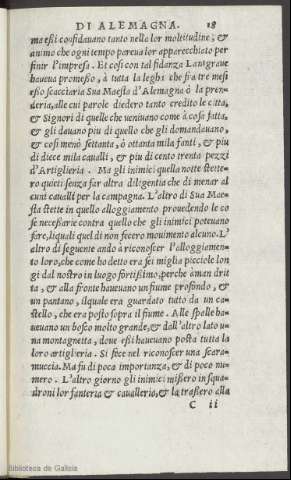 DI ALEMAGNA. 18
ma eßi confidauano tanto nella lor moltitudine, &
animo che ogni tempo pareua lor apparecchiato per
finir l'impresa. Et cosi con tal fidanza Lantgraue
haueua promesso, à tutta la legha che fra tre mesi
eßo scacciaria Sua Maesta d'Alemagna ò la pren-
deria, alle cui parole diedero tanto credito le citta,
& Signori di quelle che ueniuano come à cosa fatta,
& gli dauano piu di quello che gli domandauano,
& cosi menò settanta, ò ottanta mila fanti, & piu
di diece mila caualli, & piu di cento trenta pezzi
d'Artiglieria. Ma gli inimici quella notte stette-
ro quieti senza far altra diligentia che di menar al
cuni caualli per la campagna. L'altro di Sua Mae-
sta stette in quello alloggiamento prouedendo le co
se necessarie contra quello che gli inimici poteuano
fare, liquali quel di non fecero mouimento alcuno. L'
altro di seguente andò à riconoscer l'alloggiamen-
to loro, che come ho detto era sei miglia picciole lon
gi dal nostro in luogo fortißimo, perche à man drit
ta, & alla fronte haueuano un fiume profondo, &
un pantano, ilquale era guardato tutto da un ca-
stello, che era posto sopra il fiume. Alle spalle ha-
ueuano un bosco molto grande, & dall'altro lato u-
na montagnetta, doue eßi haueuano posta tutta la
loro artiglieria. Si fece nel riconoscer una scara-
muccia. Ma fu di poca importanza, & di poco nu-
mero. L'altro giorno gli inimici missero in squa-
droni lor fanteria & cauallerio, & la trassero alla
C ii
Biblioteca de Galicia